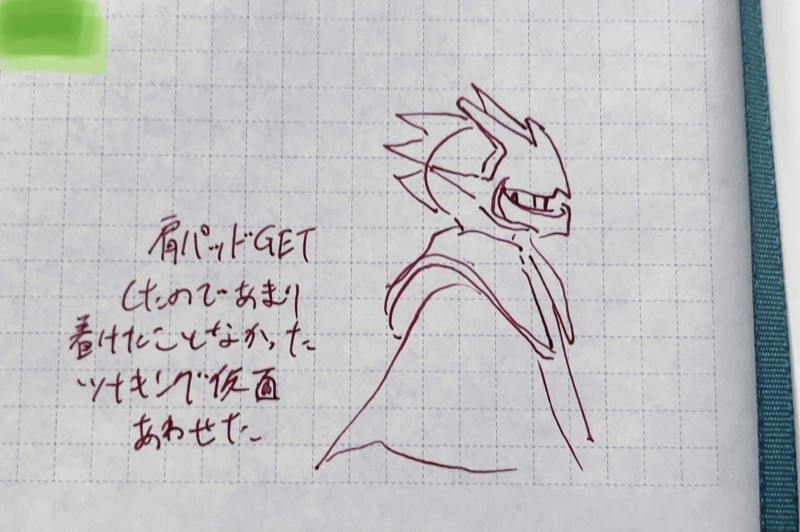 肩パッドGET
したのであまり
着けたことなかった
ツナキング仮面
あわせた